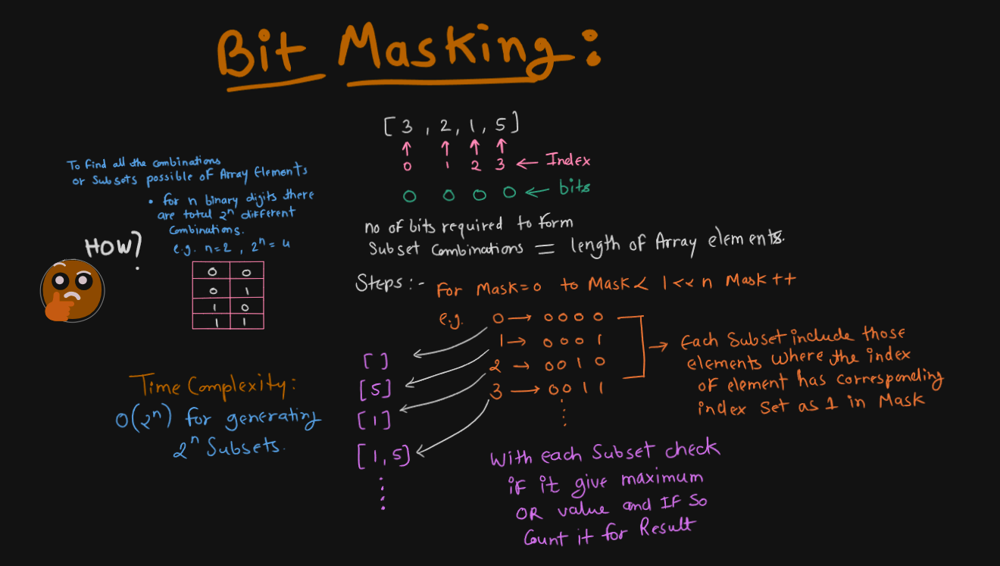 Bit Masking:
[3, 2, 1, 5]
0 1 2 3 ← Index
0 0 0 0 ← bits
no of bits required to form
Subset Combinations = length of Array elements.
To find all the combinations
or Subsets possible of Array Elements
• for n binary digits there
are total 2^n different
Combinations.
e.g. n=2, 2^n = 4
HOW?
0 0
0 1
1 0
1 1
Steps:- For Mask=0 to Mask < 1<<n Mask++
e.g. 0 → 0 0 0 0
1 → 0 0 0 1
2 → 0 0 1 0
3 → 0 0 1 1
[ ]
[5]
[1]
[1, 5]
→ Each Subset include those
elements where the index
of element has corresponding
index set as 1 in Mask
Time Complexity:
O(2^n) for generating
2^n Subsets.
With each Subset check
if it give maximum
OR value and IF So
Count it for Result